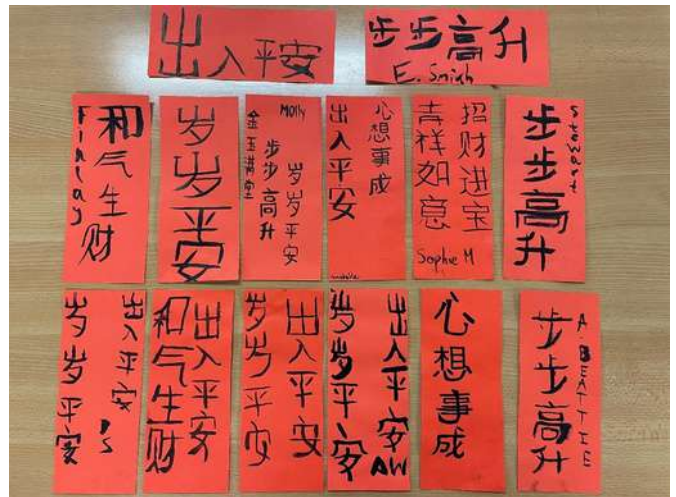 出入平安
步步高升
E. Smith
Finlay
和气生财
岁岁平安
Molly
金玉满堂
步步高升
岁岁平安
出入平安
心想事成
吉祥如意
招财进宝
Sophie M
步步高升
Stewart
岁岁平安
出入平安
B.S
和气生财
出入平安
岁岁平安
出入平安
岁岁平安
出入平安
AW
心想事成
步步高升
A.BEATTIE